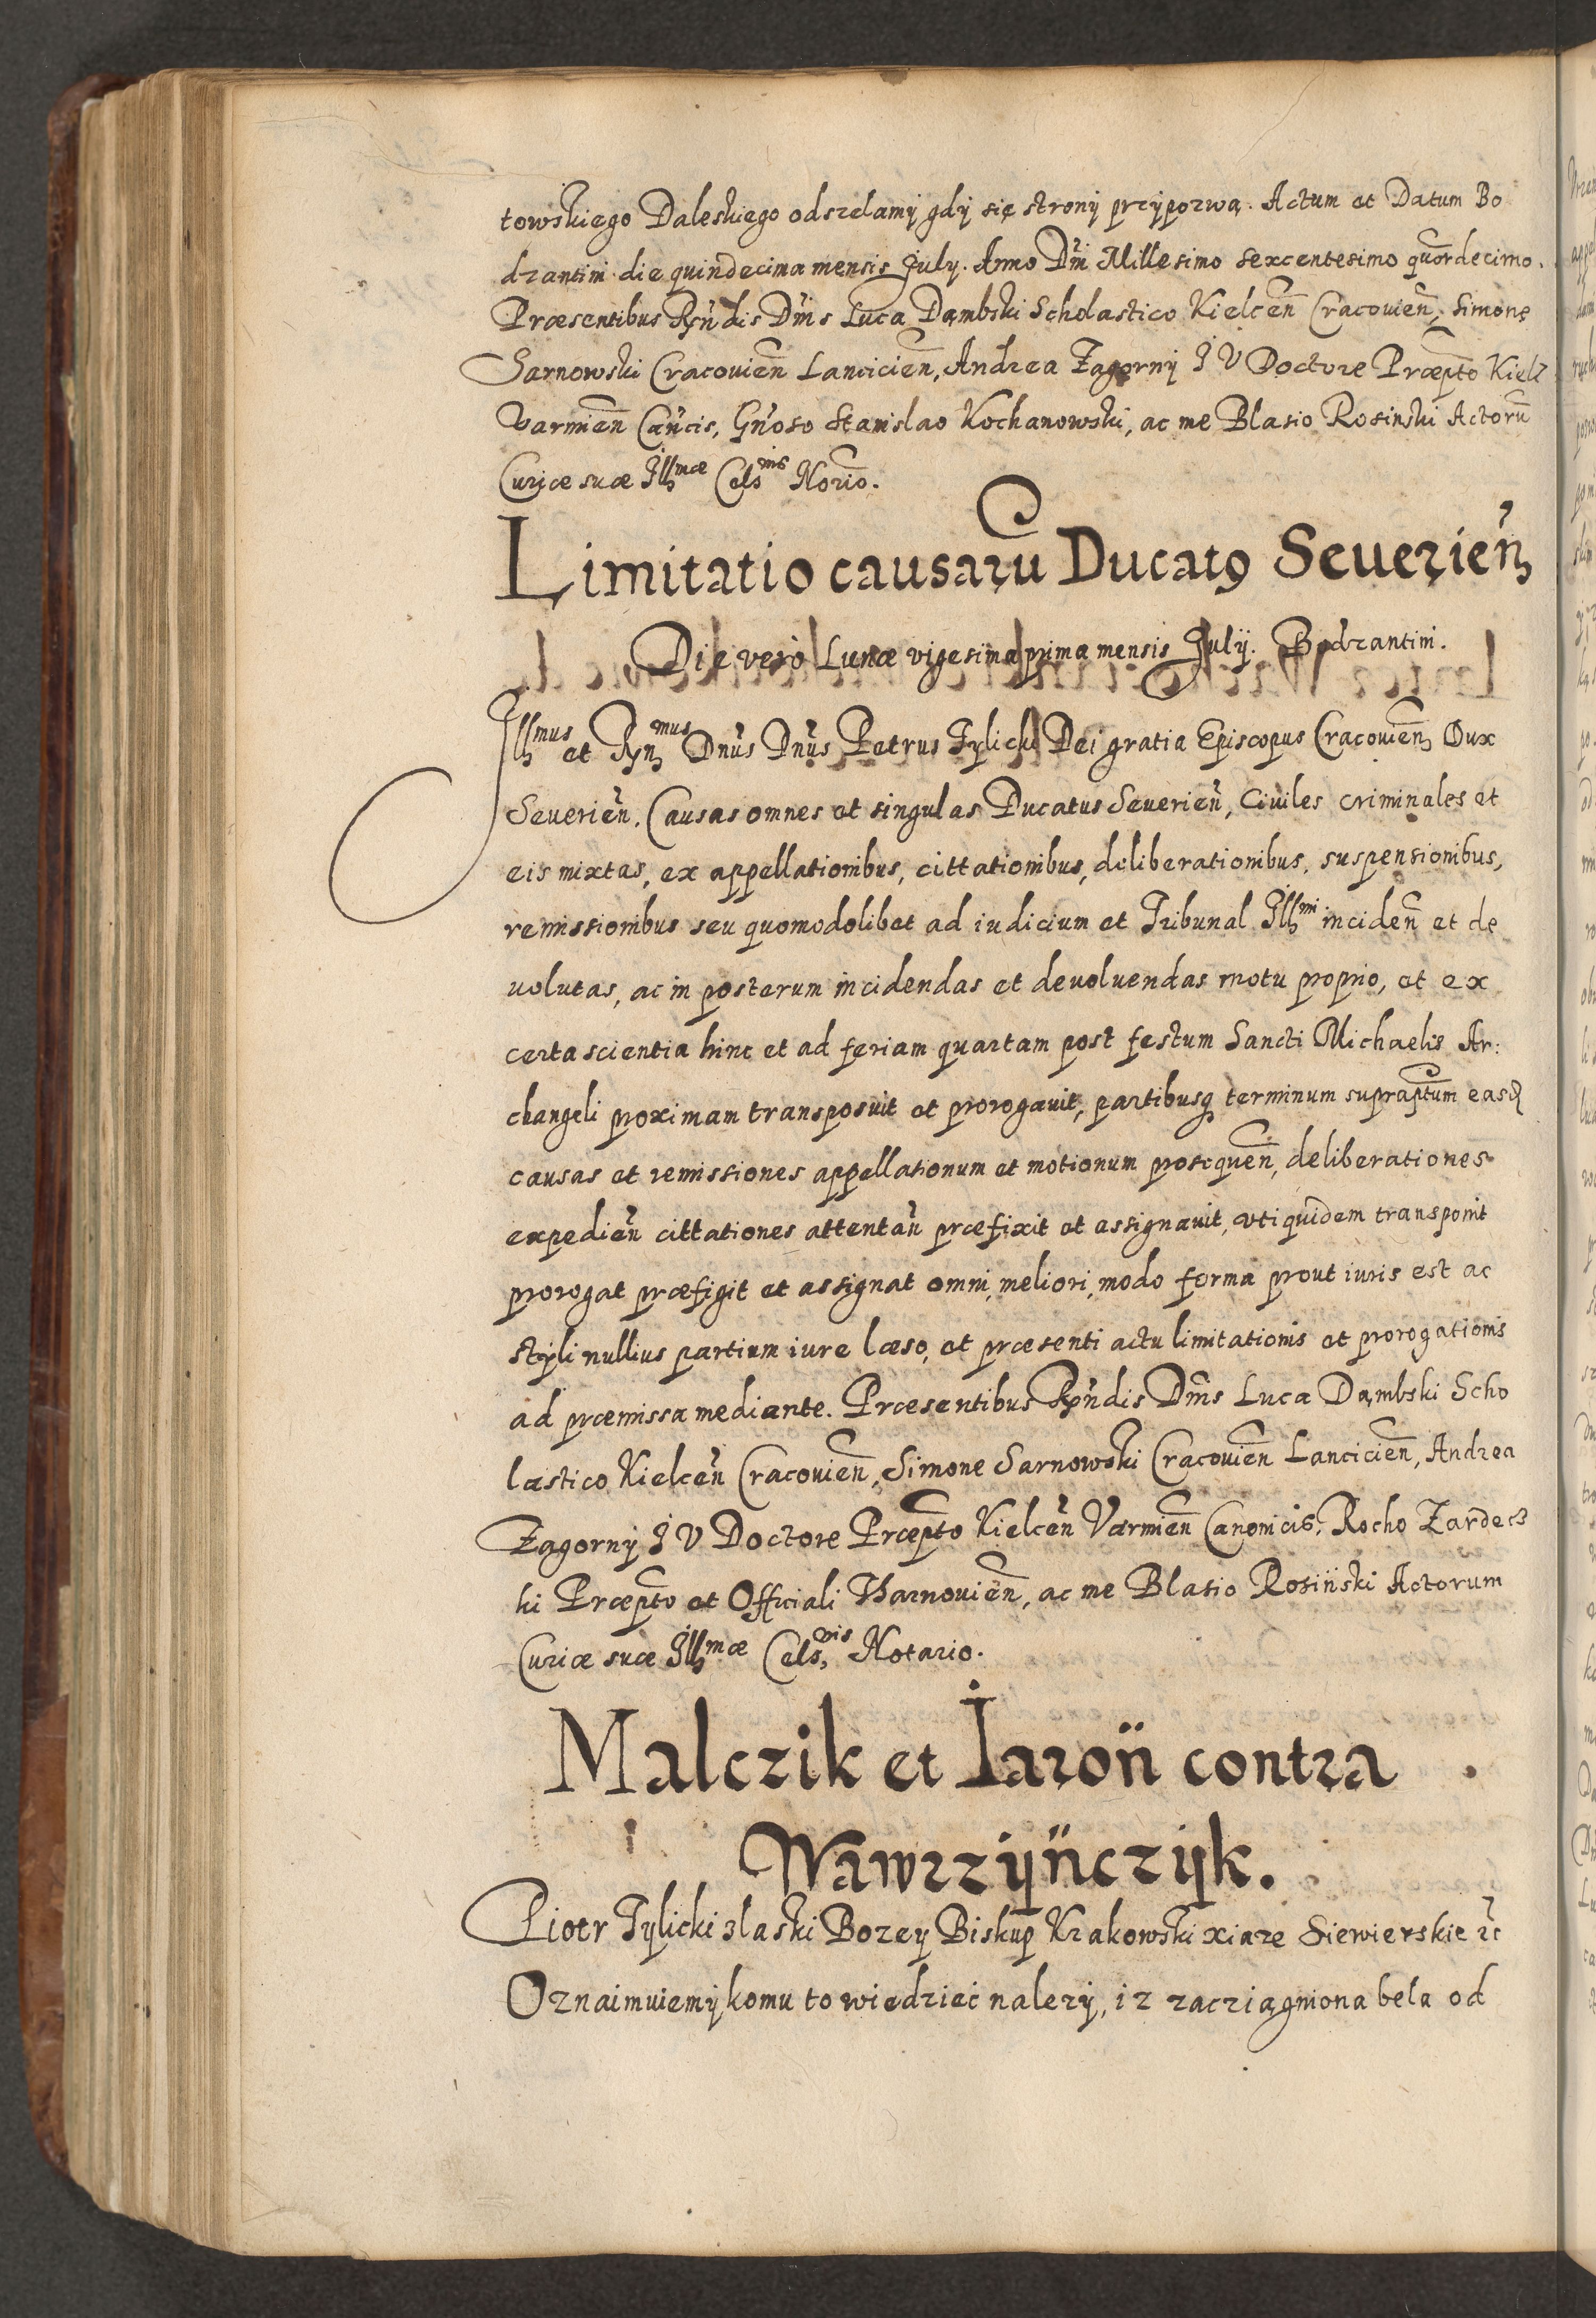 towskiego Daleskiego odszelamÿ gdÿ się stronÿ przÿpozwą. Actum et Datum Bo
dzantini die quindecima mensis Julÿ. Anno Dni̅ Millesimo sexcentesimo quo̅rdecimo.
Præsentibus Rn̅dis Dni̅s Luca Dąmbski Scholastico Kielcen̅ Cracouien̅, Simone
Sarnowski Cracouien̅ Lancicien̅, Andrea Zagornÿ J V Doctore Præpto̅ Kielz
Varmien̅ Can̅cis, Gn̅oso Stanislao Kochanowski, ac me Blasio Rosinski Actoru̅
Curiæ suæ Illmæ Celsnis Norio̅.
Limitatio causaru̅ Ducatꝯ Seuerien̅
Die vero Lunæ vigesima prima mensis Julÿ. Bodzantini.
Illmus et Rnmus Dn̅us Dn̅us Petrus Tylicki Dei gratia Episcopus Cracouien̅ Dux
Seuerien̅. Causas omnes et singulas Ducatus Seuerien̅, Ciuiles criminales et
eis mixtas, ex appellationibus, cittationibus, deliberationibus, suspensionibus,
remissionibus seu quomodolibet ad iudicium et Tribunal Illmi inciden̅ et de
uolutas, ac in posterum incidendas et deuoluendas motu proprio, et ex
certa scientia hinc et ad feriam quartam post festum Sancti Michaelis Ar:
changeli proximam transposuit et prorogauit, partibusq terminum suprapt̅um easd
causas et remissiones appellationum et motionum prosequen̅, deliberationes
expedien̅ cittationes attentan̅ præfixit et assignauit, vti quidem transponit
prorogat præfigit et assignat omni, meliori, modo forma prout iuris est ac
stÿli nullius partium iure læso, et præsenti actu limitationis et prorogationis
ad præmissa mediante. Præsentibus Rn̅dis Dni̅s Luca Dąmbski Scho
lastico Kielcen̅ Cracouien̅, Simone Sarnowski Cracouien̅ Lancicien̅, Andrea
Zagornÿ J V Doctore Præpto̅ Kielcen̅ Varmien̅ Canonicis, Rocho Zardec
ki Præpto̅ et Officiali Tharnouien̅, ac me Blasio Rosiński Actorum
Curiæ suæ Illmæ Cels,nis Notario.
Malczik et Jaroń contra
Wawrzÿńczÿk.
Piotr Tylicki z laski Bozeÿ Biskup Krakowski xiaze Siewierskie ꝛc
Oznaimuiemÿ komu to wiedzieć nalezÿ, iz zacziągniona bela od